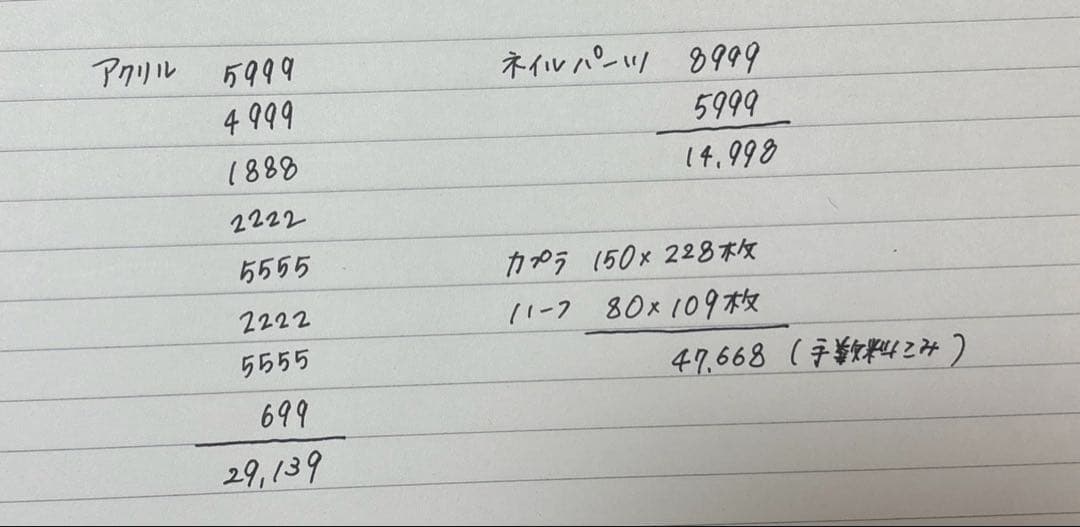 アクリル 5999
4999
1888
2222
5555
2222
5555
699
29,139
ネイルパーツ 8999
5999
14,998
カプラ 150×228枚
ハーフ 80×109枚
47,668 (手数料こみ)